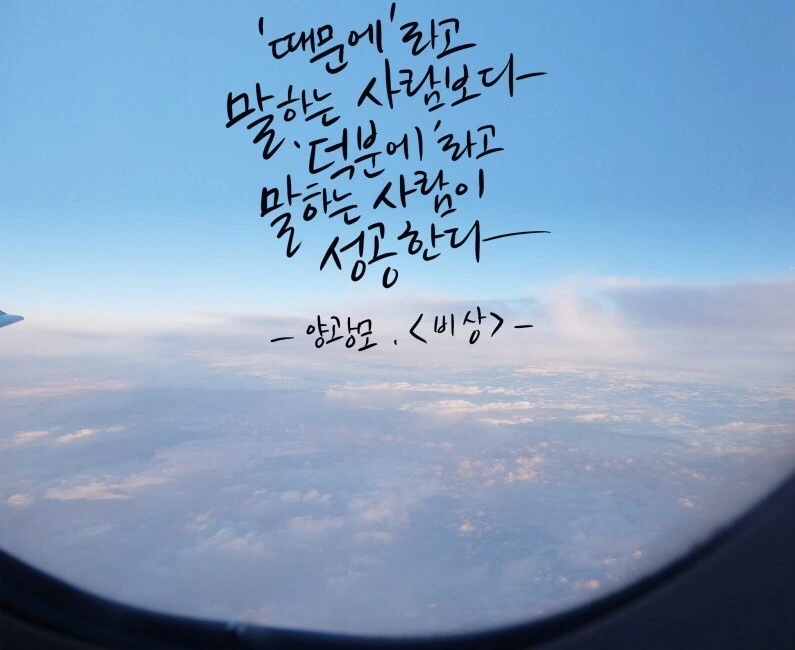 '때문에'라고
말하는 사람보다
'덕분에'라고
말하는 사람이
성공한다
- 양광모, <비상> -